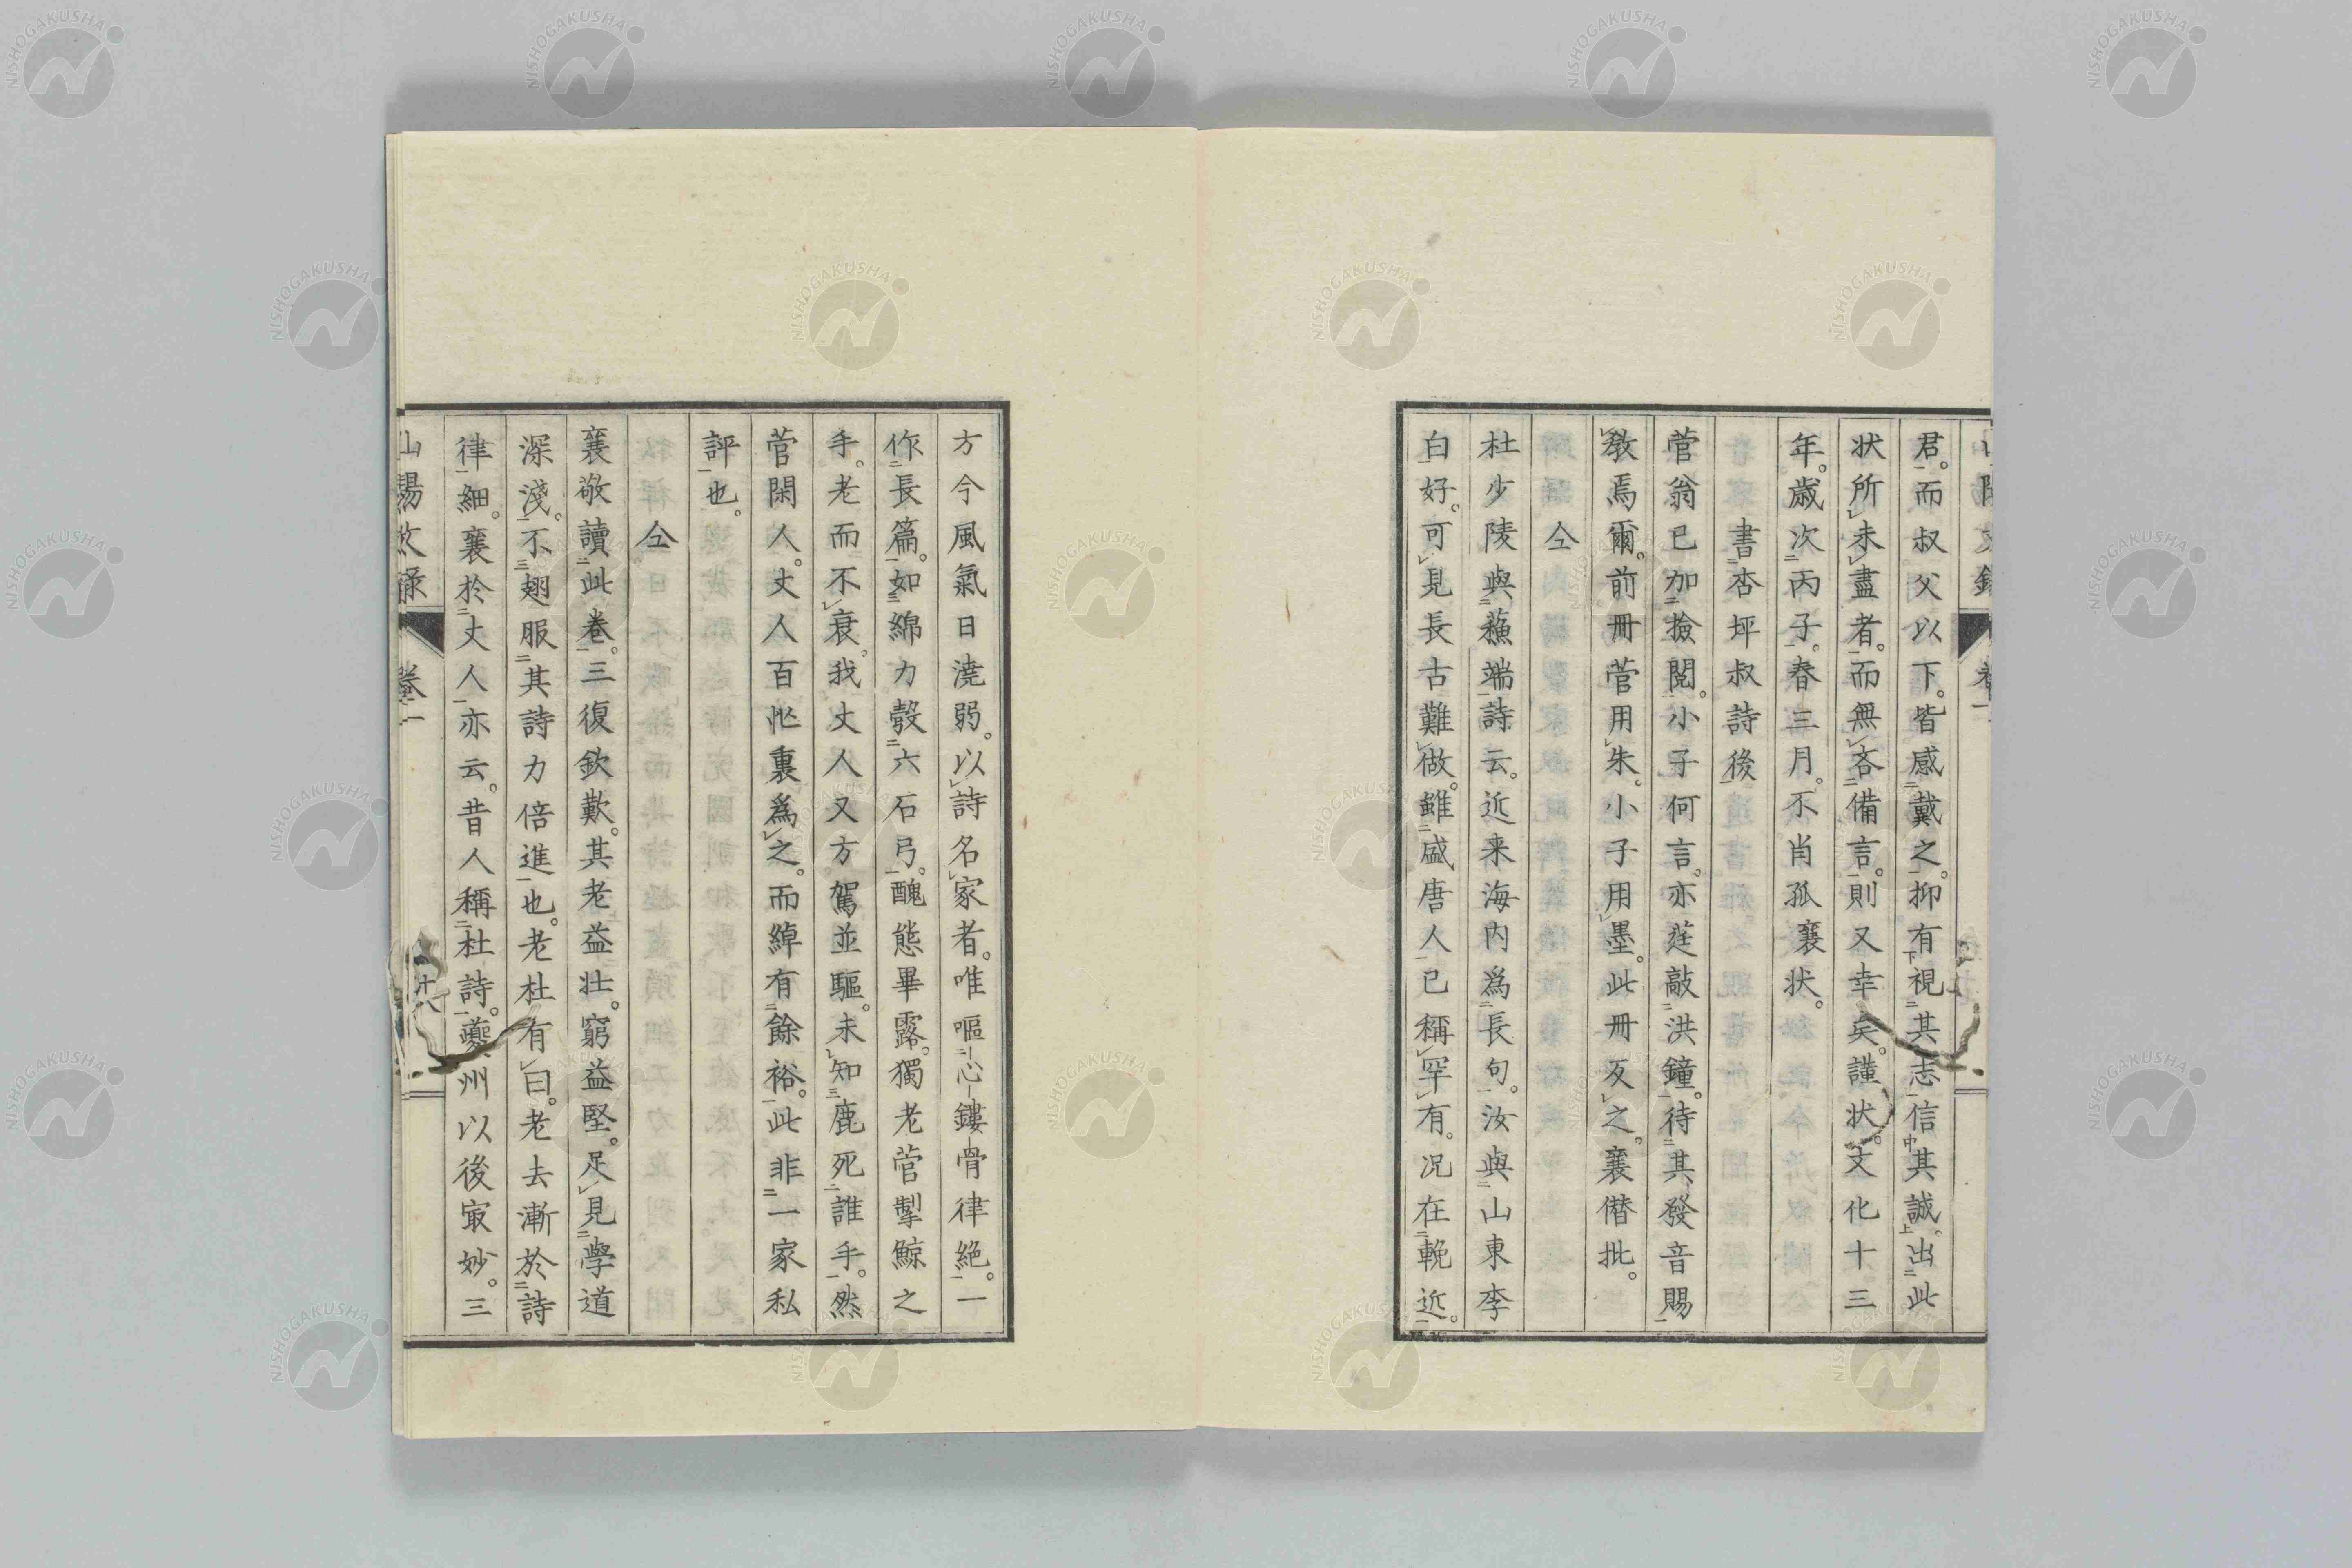 君。而叔父以下。皆感戴之。抑有視其志信其誠。出此
状所未盡者。而無吝備言。則又幸矣。謹状。文化十三
年。歳次丙子。春三月。不肖孤襄状。
書杏坪叔詩後
菅翁已加撿閲。小子何言。亦莛敲洪鐘。待其發音賜
教焉爾。前冊菅用朱。小子用墨。此冊反之。襄僭批。
仝
杜少陵與蘓端詩云。近来海内為長句。汝與山東李
白好。可見長古難做。雖盛唐人已稱罕有。况在輓近。
方今風氣日澆弱。以詩名家者。唯嘔心鏤骨律絶。一
作長篇。如綿力彀六石弓。醜態畢露。獨老菅掣鯨之
手。老而不衰。我丈人又方駕並驅。未知鹿死誰手。然
菅閑人。丈人百忙裏為之。而綽有餘裕。此非一家私
評也。
仝
襄敬讀此卷。三復欽歎。其老益壮。窮益堅。足見學道
深淺。不翅服其詩力倍進也。老杜有曰。老去漸於詩
律細。襄於丈人亦云。昔人稱杜詩。夔州以後㝡妙。三
山陽文録 卷一 廿八